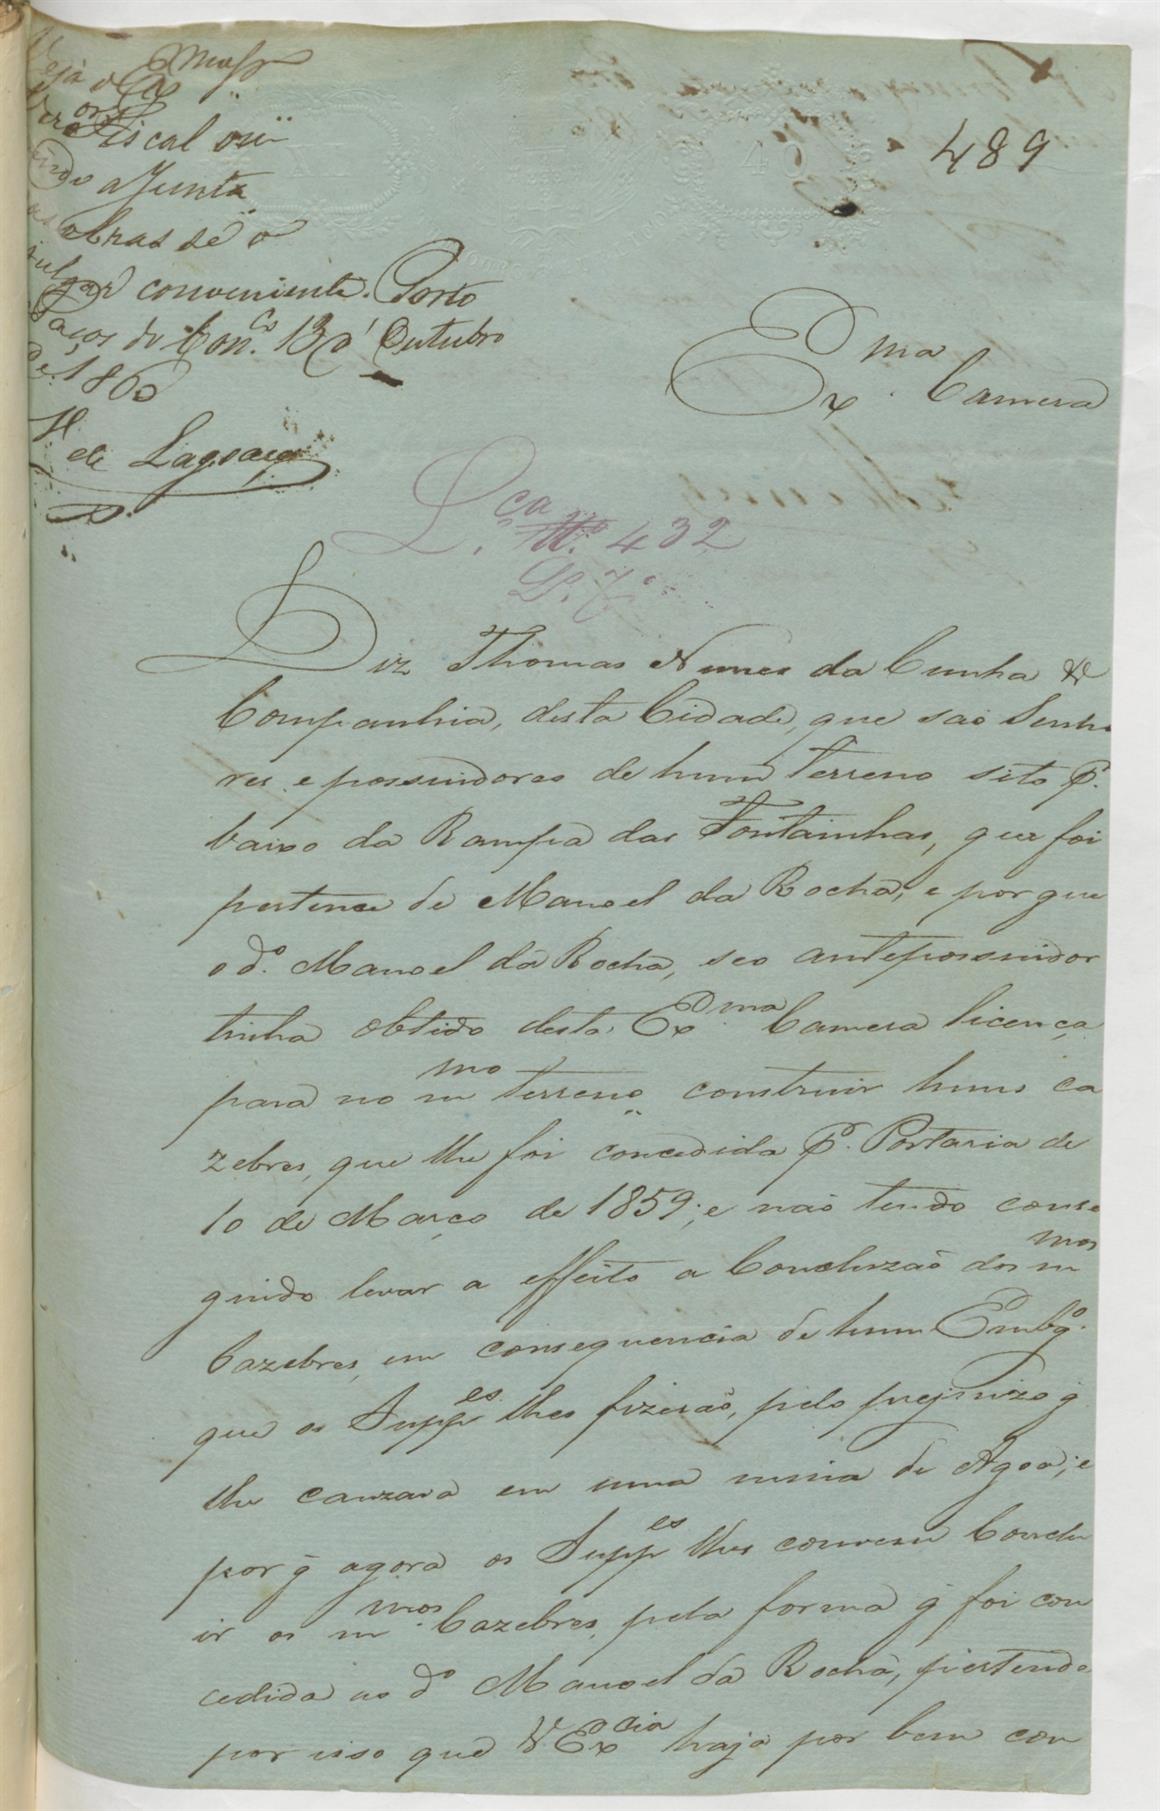 Veja o Ill.mo Snr
Vereador Fiscal ou
vindo a Junta
das obras se o
julgar conveniente. Porto
Paços do Con.co 13 d'Outubro
de 1860
V. de Lagoaça
489
Ex.ma Camera
L.ca N.o 432
L.o 7.o
Diz Thomas Nunes da Cunha &
Companhia, desta Cidade, que são Senho
res e possuidores de hum terreno sito p.r
baixo da Rampa das Fontainhas, que foi
pertence de Manoel da Rocha, e por que
o d.o Manoel da Rocha, seo antepossuidor
tinha obtido desta Ex.ma Camera licença
para no m.mo terreno construir huns ca
zebres, que lhe foi concedida p.r Portaria de
10 de Março de 1859; e não tendo conse
guido levar a effeito a Concluzão dos m.mos
Cazebres, em consequencia de hum Embg.o
que os Supp.es lhes fizerão, pelo prejuizo q̃
lhe cauzava em uma mina de Agoa; e
por q̃ agora os Supp.es lhes convem Conclu
ir os m.mos Cazebres, pela forma q̃ foi con
cedida ao d.o Manoel da Rocha, pertende
por isso que V Ex.cia haja por bem con